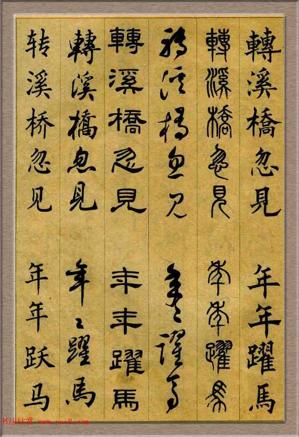 轉溪橋忽見 年年躍馬
轉溪橋忽見 年年躍馬
轉溪橋忽見 年々躍馬
轉溪橋忽見 年年躍馬
轉溪橋忽見 年々躍馬
转溪桥忽见 年年跃马